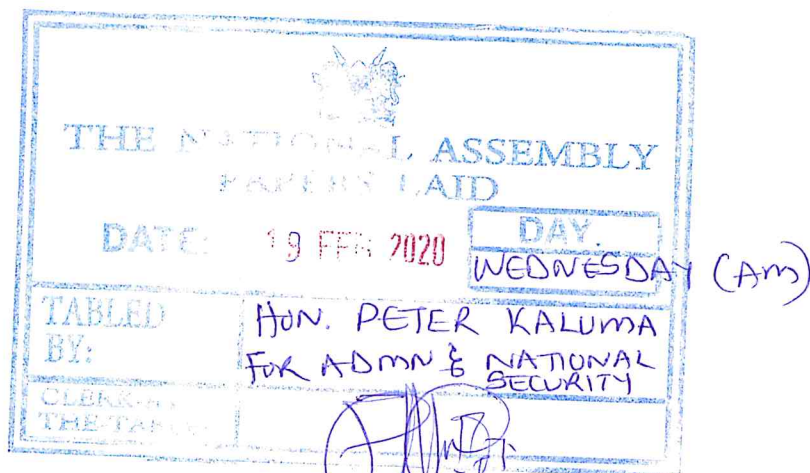 THE NATIONAL ASSEMBLY
PAPERS LAID
DATE: 19 FEB 2020 DAY.
WEDNESDAY (Am)
TABLED BY: HON. PETER KALUMA
FOR ADMN & NATIONAL SECURITY
CLERK-AT
THE-TABLE